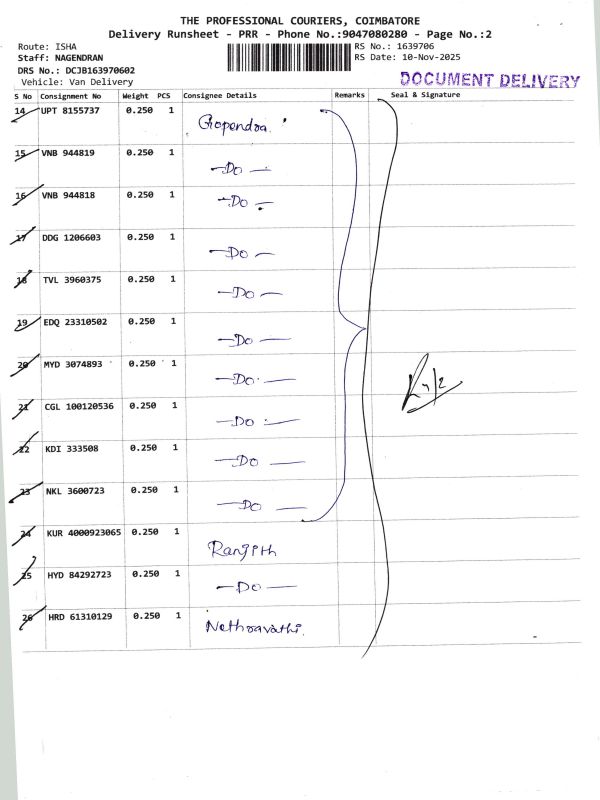 THE PROFESSIONAL COURIERS, COIMBATORE
Delivery Runsheet - PRR - Phone No.:9047080280 - Page No.:2
Route: ISHA
Staff: NAGENDRAN
DRS No.: DCJB163970602
Vehicle: Van Delivery
RS No.: 1639706
RS Date: 10-Nov-2025
DOCUMENT DELIVERY
S No Consignment No Weight PCS Consignee Details Remarks Seal & Signature
14 UPT 8155737 0.250 1 Gopendra.
15 VNB 944819 0.250 1 -Do-
16 VNB 944818 0.250 1 -Do-
17 DDG 1206603 0.250 1 -Do-
18 TVL 3960375 0.250 1 -Do-
19 EDQ 23310502 0.250 1 -Do-
20 MYD 3074893 0.250 1 -Do-
21 CGL 100120536 0.250 1 -Do-
22 KDI 333508 0.250 1 -Do-
23 NKL 3600723 0.250 1 -Do-
24 KUR 4000923065 0.250 1 Ranjith
25 HYD 84292723 0.250 1 -Do-
26 HRD 61310129 0.250 1 Nethravathi.